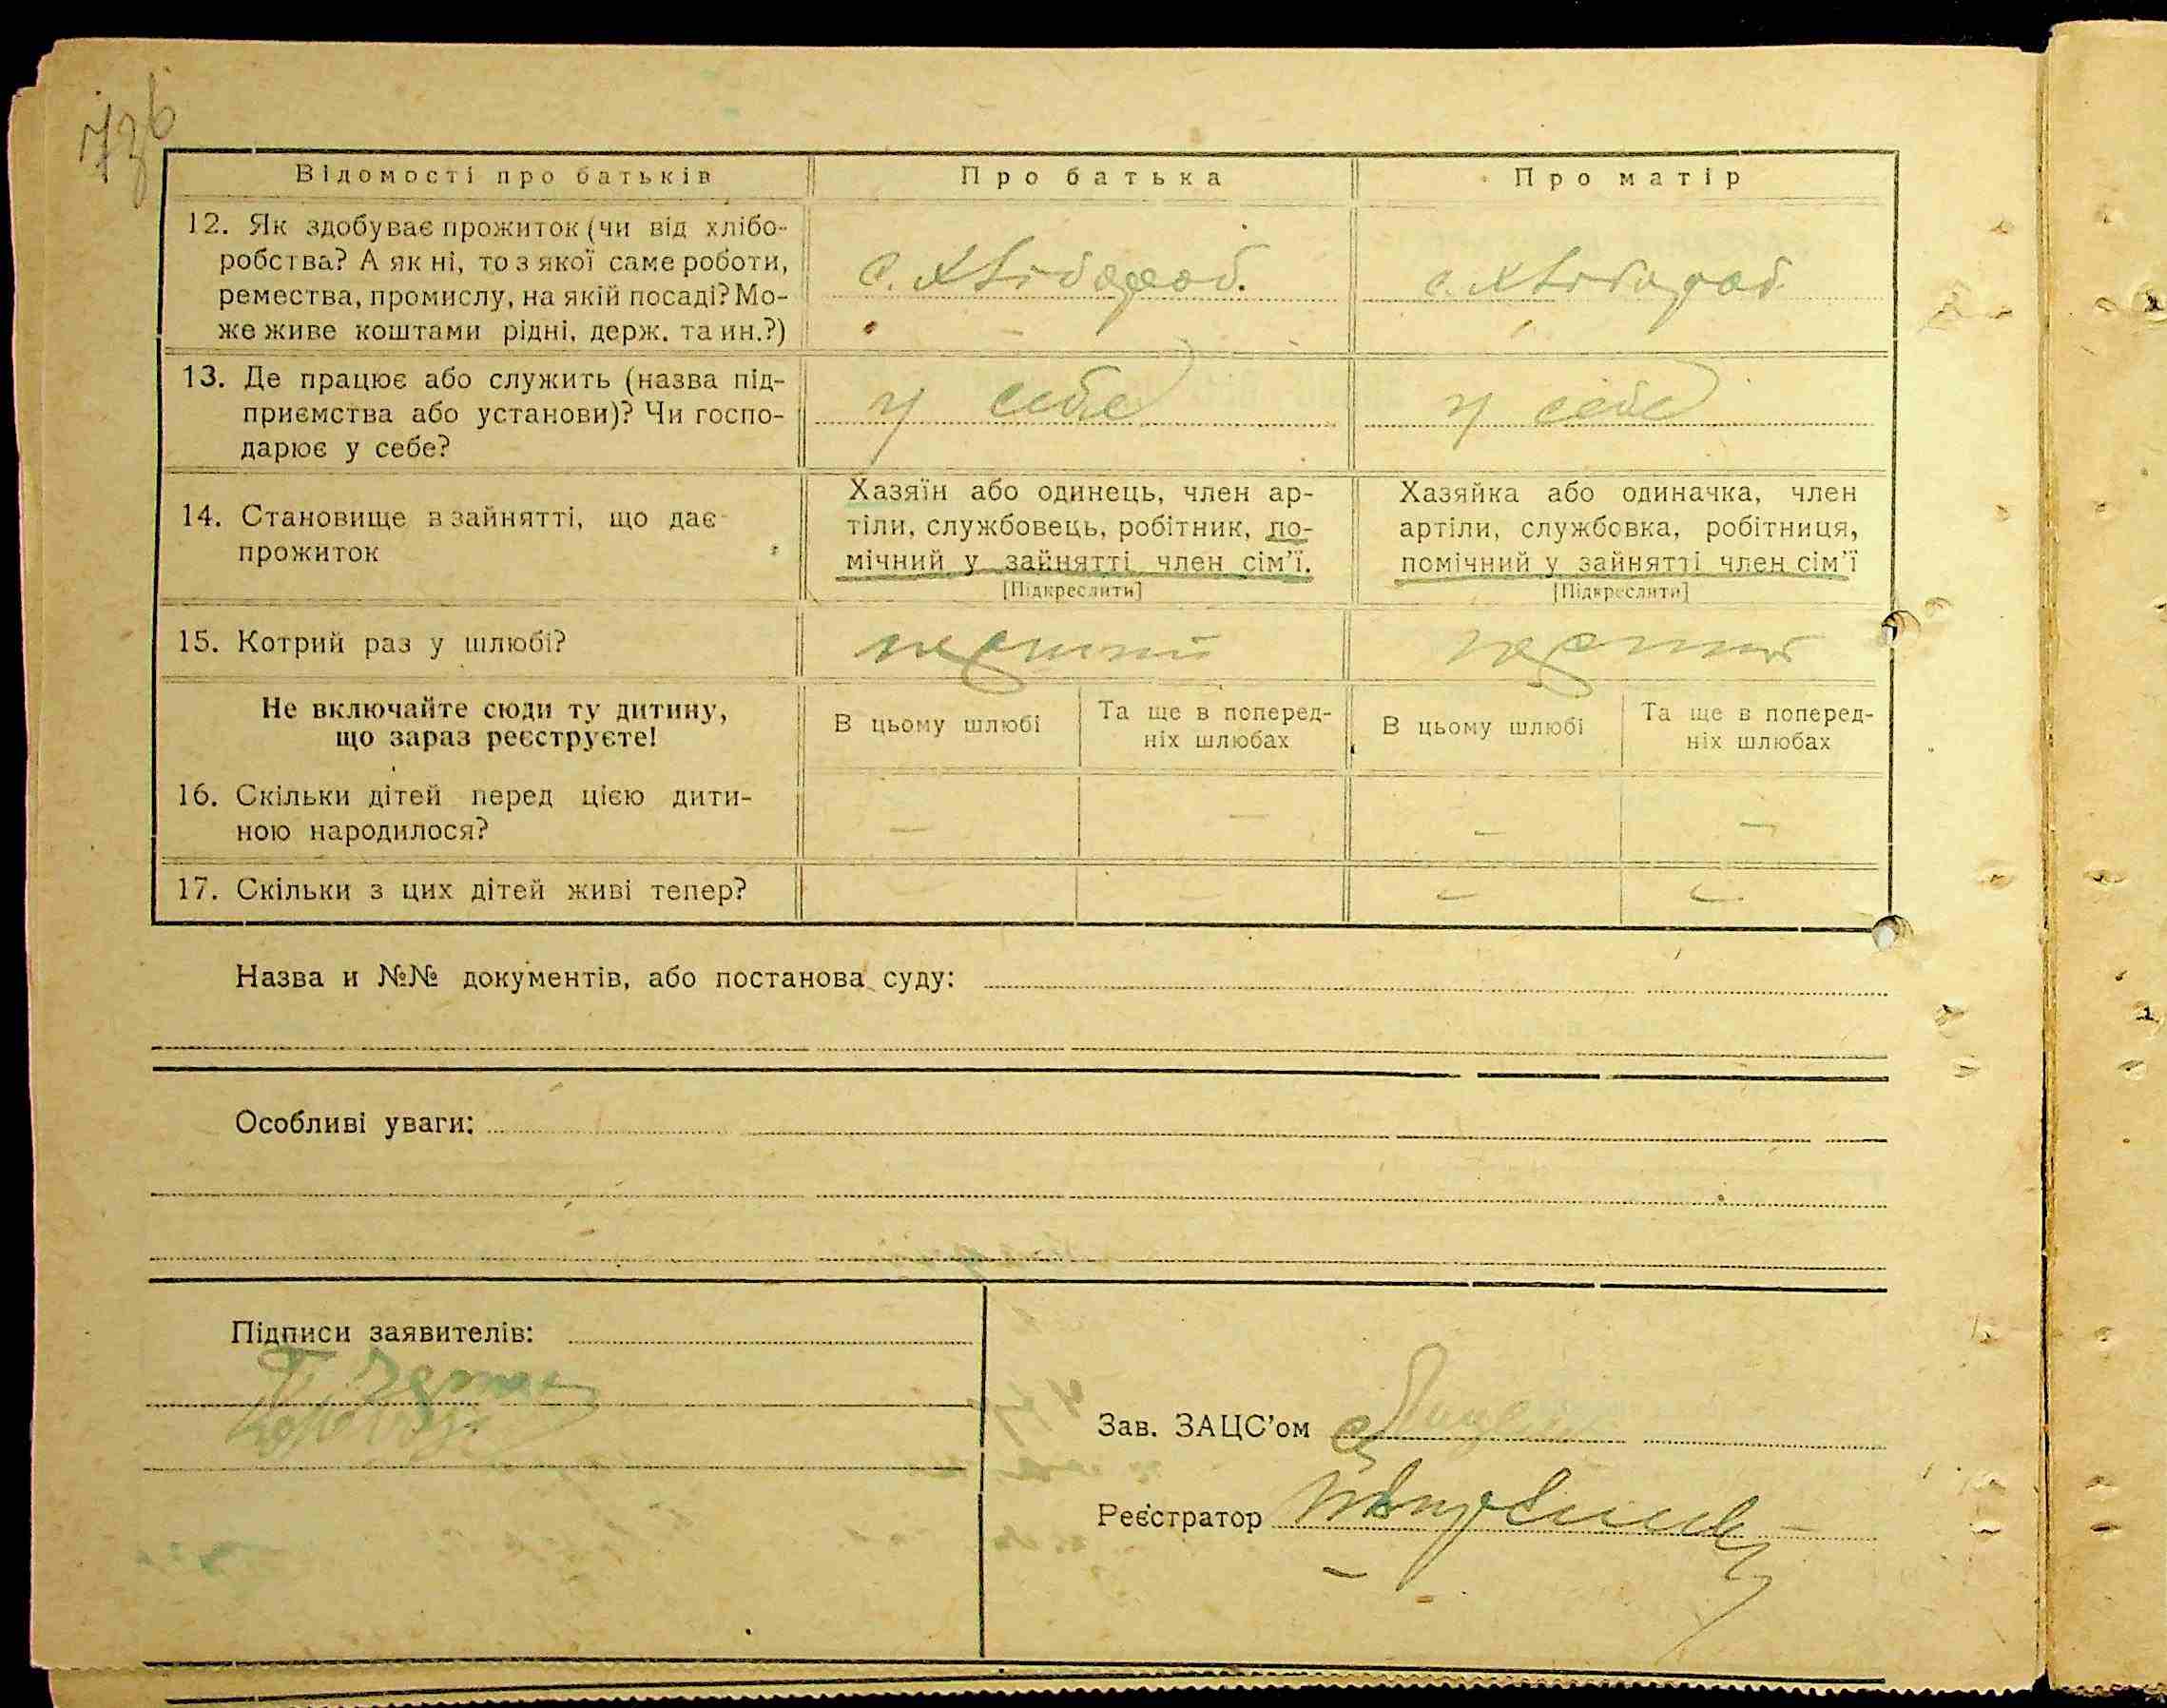 73б
Відомості про батьків
Про батька
Про матір
12. Як здобуває прожиток (чи від хлібо-
робства? А як ні, то з якої саме роботи,
ремества, промислу, на якій посаді? Мо-
же живе коштами рідні, держ. та ин.?)
с. хлібороб.
с. хлібороб.
13. Де працює або служить (назва під-
приємства або установи)? Чи госпо-
дарює у себе?
у себе
у себе
14. Становище в зайнятті, що дає
прожиток
Хазяїн або одинець, член ар-
тіли, службовець, робітник, по-
мічний у зайнятті член сім'ї.
[Підкреслити]
Хазяйка або одиначка, член
артіли, службовка, робітниця,
помічний у зайнятті член сім'ї
[Підкреслити]
15. Котрий раз у шлюбі?
перший
перший
Не включайте сюди ту дитину,
що зараз реєструєте!
В цьому шлюбі
Та ще в поперед-
ніх шлюбах
В цьому шлюбі
Та ще в поперед-
ніх шлюбах
16. Скільки дітей перед цією дити-
ною народилося?
– – – –
17. Скільки з цих дітей живі тепер?
– – – –
Назва и №№ документів, або постанова суду:
Особливі уваги:
Підписи заявителів:
Зав. ЗАЦС'ом
Реєстратор